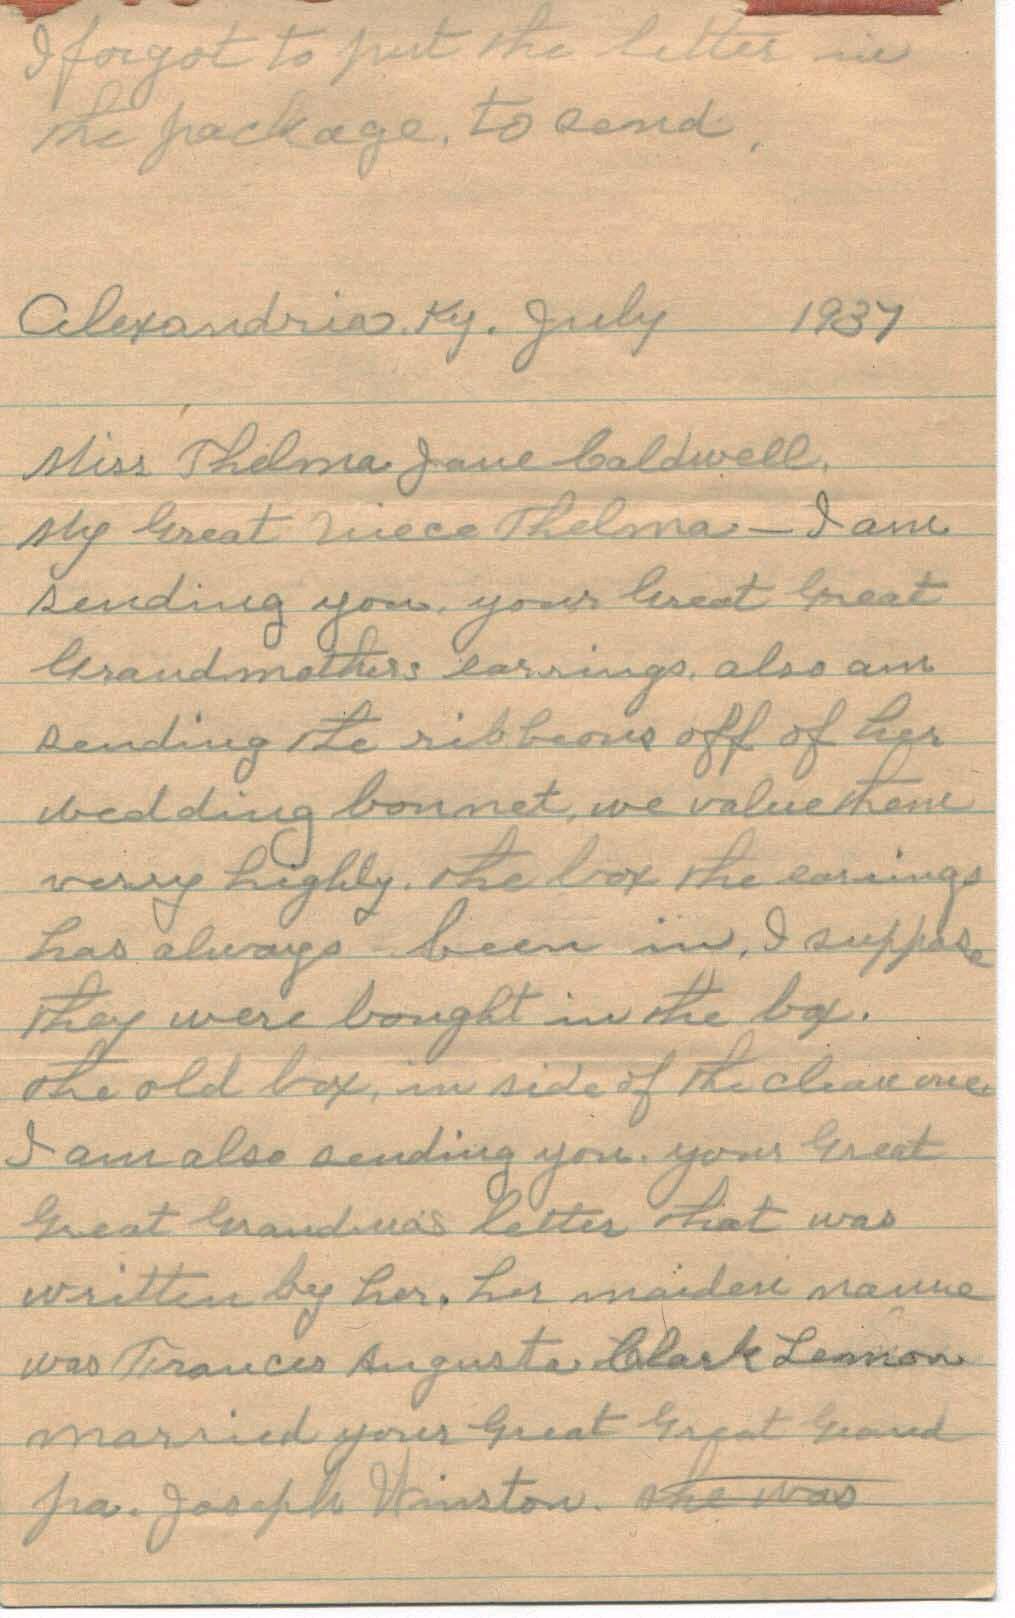 I forgot to put the letter in
the package. to send.
Alexandria. Ky. July 1937
Miss Thelma Jane Caldwell.
My Great Niece Thelma — I am
sending you. your Great Great
Grandmothers earrings. also am
sending the ribbeons off of her
wedding bonnet, we value them
verry highly. the box the earrings
has always been in. I suppose
they were bought in the box.
the old box, in side of the clean one
I am also sending you. your Great
Great Grandma's letter that was
written by her. her maiden name
was Frances Augusta Clark Lemon
married your Great Great Grand
pa. Joseph Winston. she was